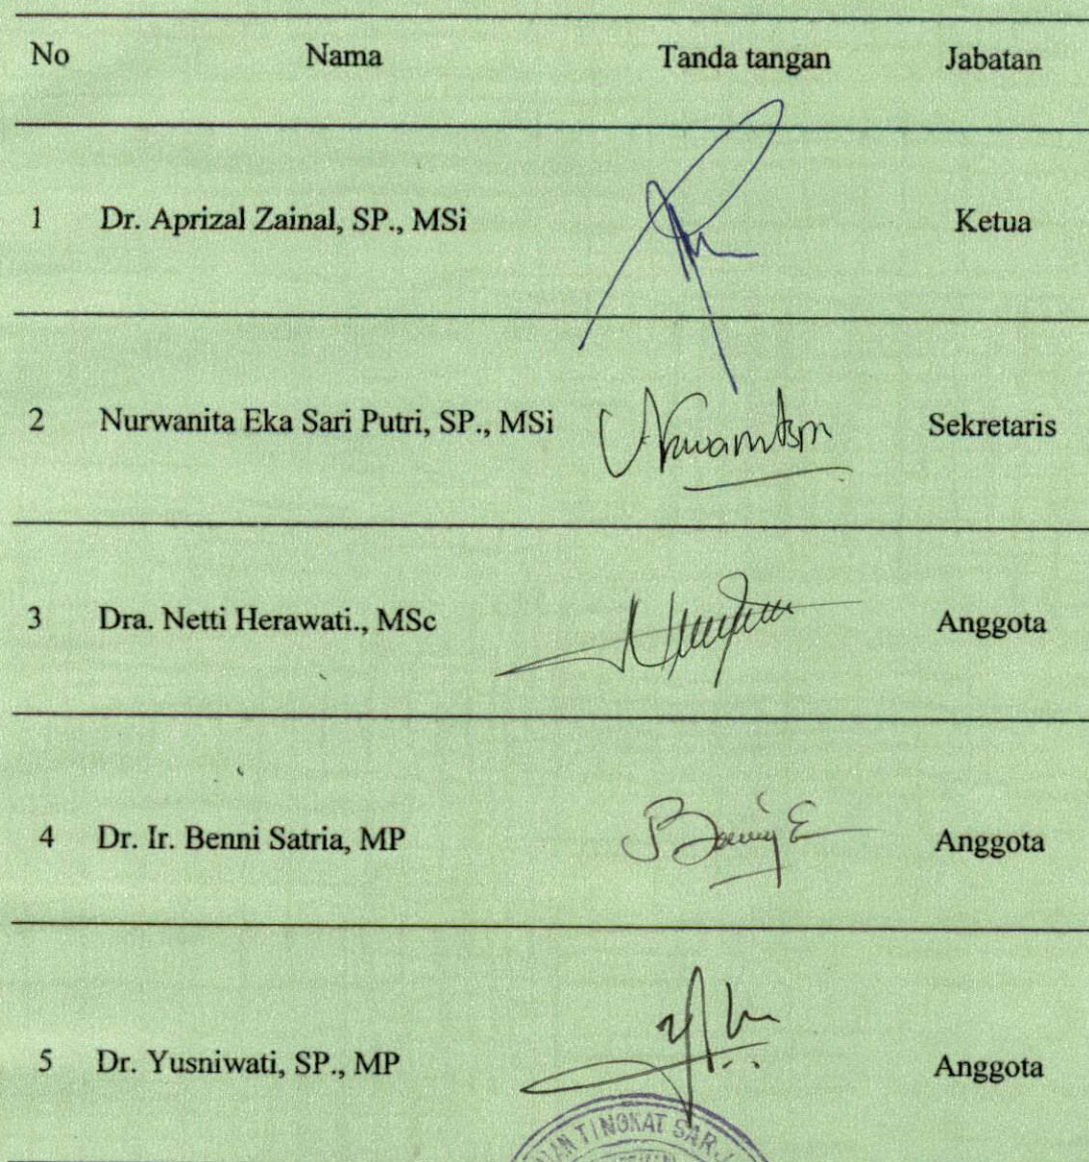 No Nama Tanda tangan Jabatan
1 Dr. Aprizal Zainal, SP., MSi Ketua
2 Nurwanita Eka Sari Putri, SP., MSi Sekretaris
3 Dra. Netti Herawati., MSc Anggota
4 Dr. Ir. Benni Satria, MP Anggota
5 Dr. Yusniwati, SP., MP Anggota
TINGKAT